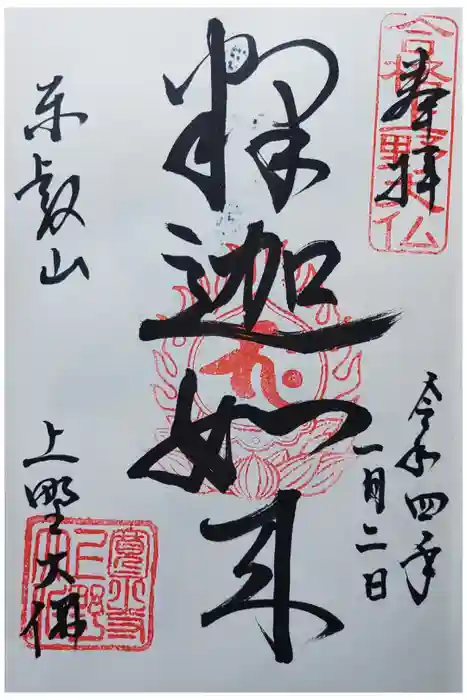 奉拝
令和四年
一月二日
釈迦如来
東叡山
上野大佛
寛永寺
上野
大仏